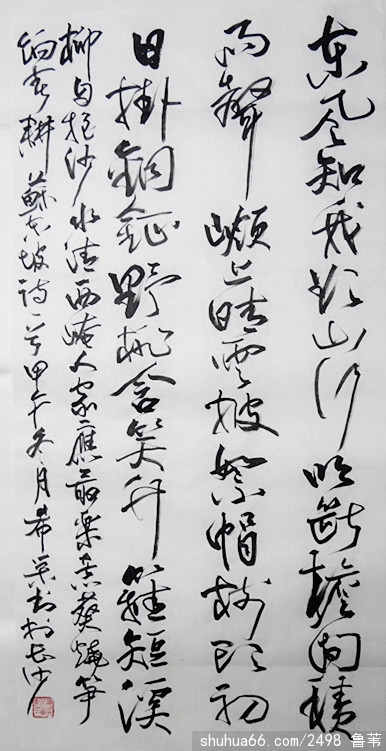 東风知我欲山行吹断檐间積
雨聲嶺上晴雲披絮帽树头初
日掛銅鉦野桃含笑竹籬短溪
柳自摇沙水清西崦人家應最樂煮葵燒笋
餉春耕蘇东坡诗一首甲午冬月希书於长沙
shuhua66.com/2498 鲁苇